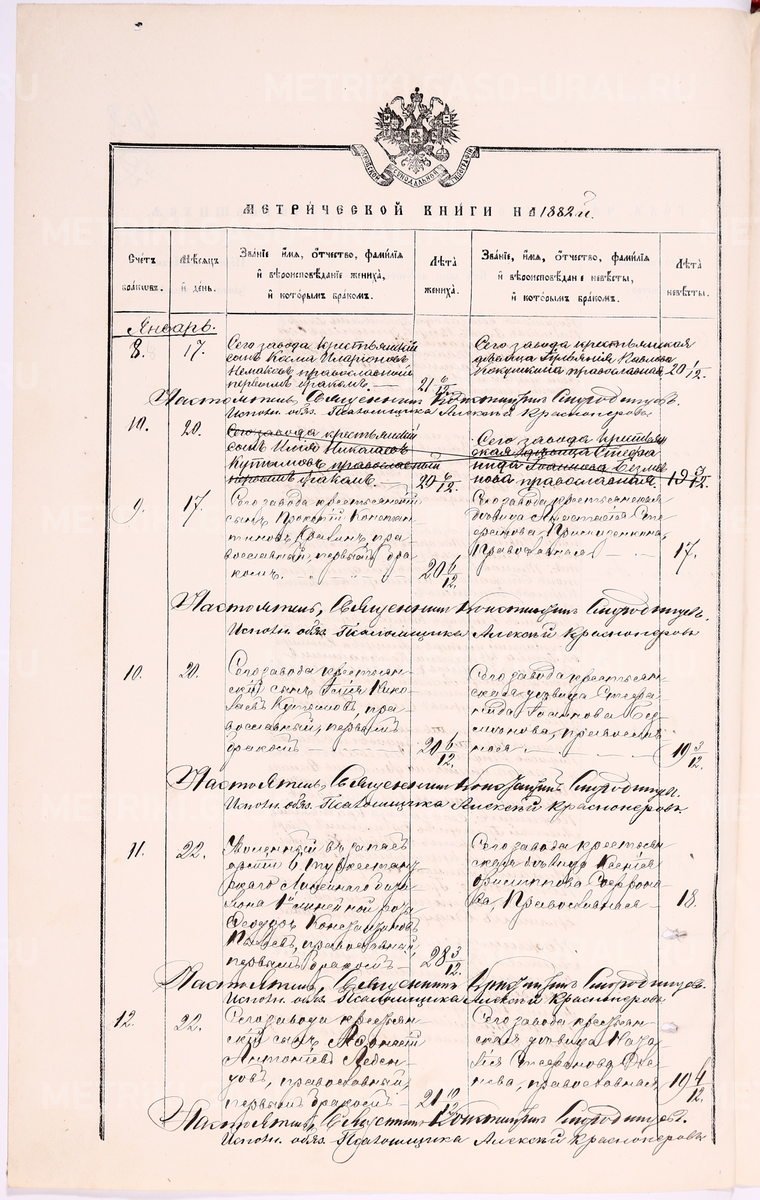 METRIKI.GASO-URAL.RU
МОСКОВСКОЙ СѴНОДАЛЬНОЙ ТИПОГРАФІИ
МЕТРИ́ЧЕСКОЙ КНИГИ НА 1882 й.
Счетъ браковъ.
Мѣсяцъ и день.
Зва́нїе, и́мя, ѻ́тчество, фами́лїя и҆ вѣроисповѣ́данїе жениха̀, и҆ кото́рымъ бра́комъ.
Лѣ́та жениха̀.
Зва́нїе, и́мя, ѻ́тчество, фами́лїя и҆ вѣроисповѣ́данїе невѣ́сты, и҆ кото́рымъ бра́комъ.
Лѣ́та невѣ́сты.
Январь.
8.
17.
Сего завода крестьянскій
сынъ Косма Иларіоновъ
православный
первымъ бракомъ.
21 6/12.
Сего завода крестьянская
девица Павлова
Кокушкина православная
20 1/12.
Настоятель, Священникъ Константинъ
Исполн. обяз. Псаломщика Алексѣй Красноперовъ
10.
20.
Сего завода крестьянскій
сынъ Илія Николаевъ
православный
первымъ бракомъ.
20 6/12.
Сего завода крестьян
ская девица Стефа
нида Іоаннова
нова православная.
19 3/12.
9.
17.
Сего завода крестьянскій
сынъ Констан
тиновъ пра
вославный, первымъ бра
комъ.
20 6/12.
Сего завода крестьянская
девица Анастасія Сте
фанова,
Православная
17.
Настоятель, Священникъ Константинъ
Исполн. обяз. Псаломщика Алексѣй Красноперовъ
10.
20.
Сего завода крестьян
скій сынъ Илія Нико
лаевъ пра
вославный, первымъ
бракомъ
20 6/12.
Сего завода крестьян
ская девица Стефа
нида Іоаннова
православ
ная
19 3/12.
Настоятель, Священникъ Константинъ
Исполн. обяз. Псаломщика Алексѣй Красноперовъ.
11.
22.
Уволенный въ запасъ
арміи 6 Туркестан
скаго Линейнаго бата
ліона 1й линейной роты
Ѳеодоръ Константиновъ
православный,
первымъ бракомъ
28 3/12.
Сего завода крестьян
ская девица Ксенія
Филиппова
Православная
18.
Настоятель, Священникъ Константинъ
Исполн. обяз. Псаломщика Алексѣй Красноперовъ
12.
22.
Сего завода крестьян
скій сынъ
Антоніевъ Лебен
цовъ, православный,
первымъ бракомъ
21
Сего завода крестьян
ская девица Ната
лія Стефанова
православная,
19 4/12.
Настоятель, Священникъ Константинъ
Исполн. обяз. Псаломщика Алексѣй Красноперовъ